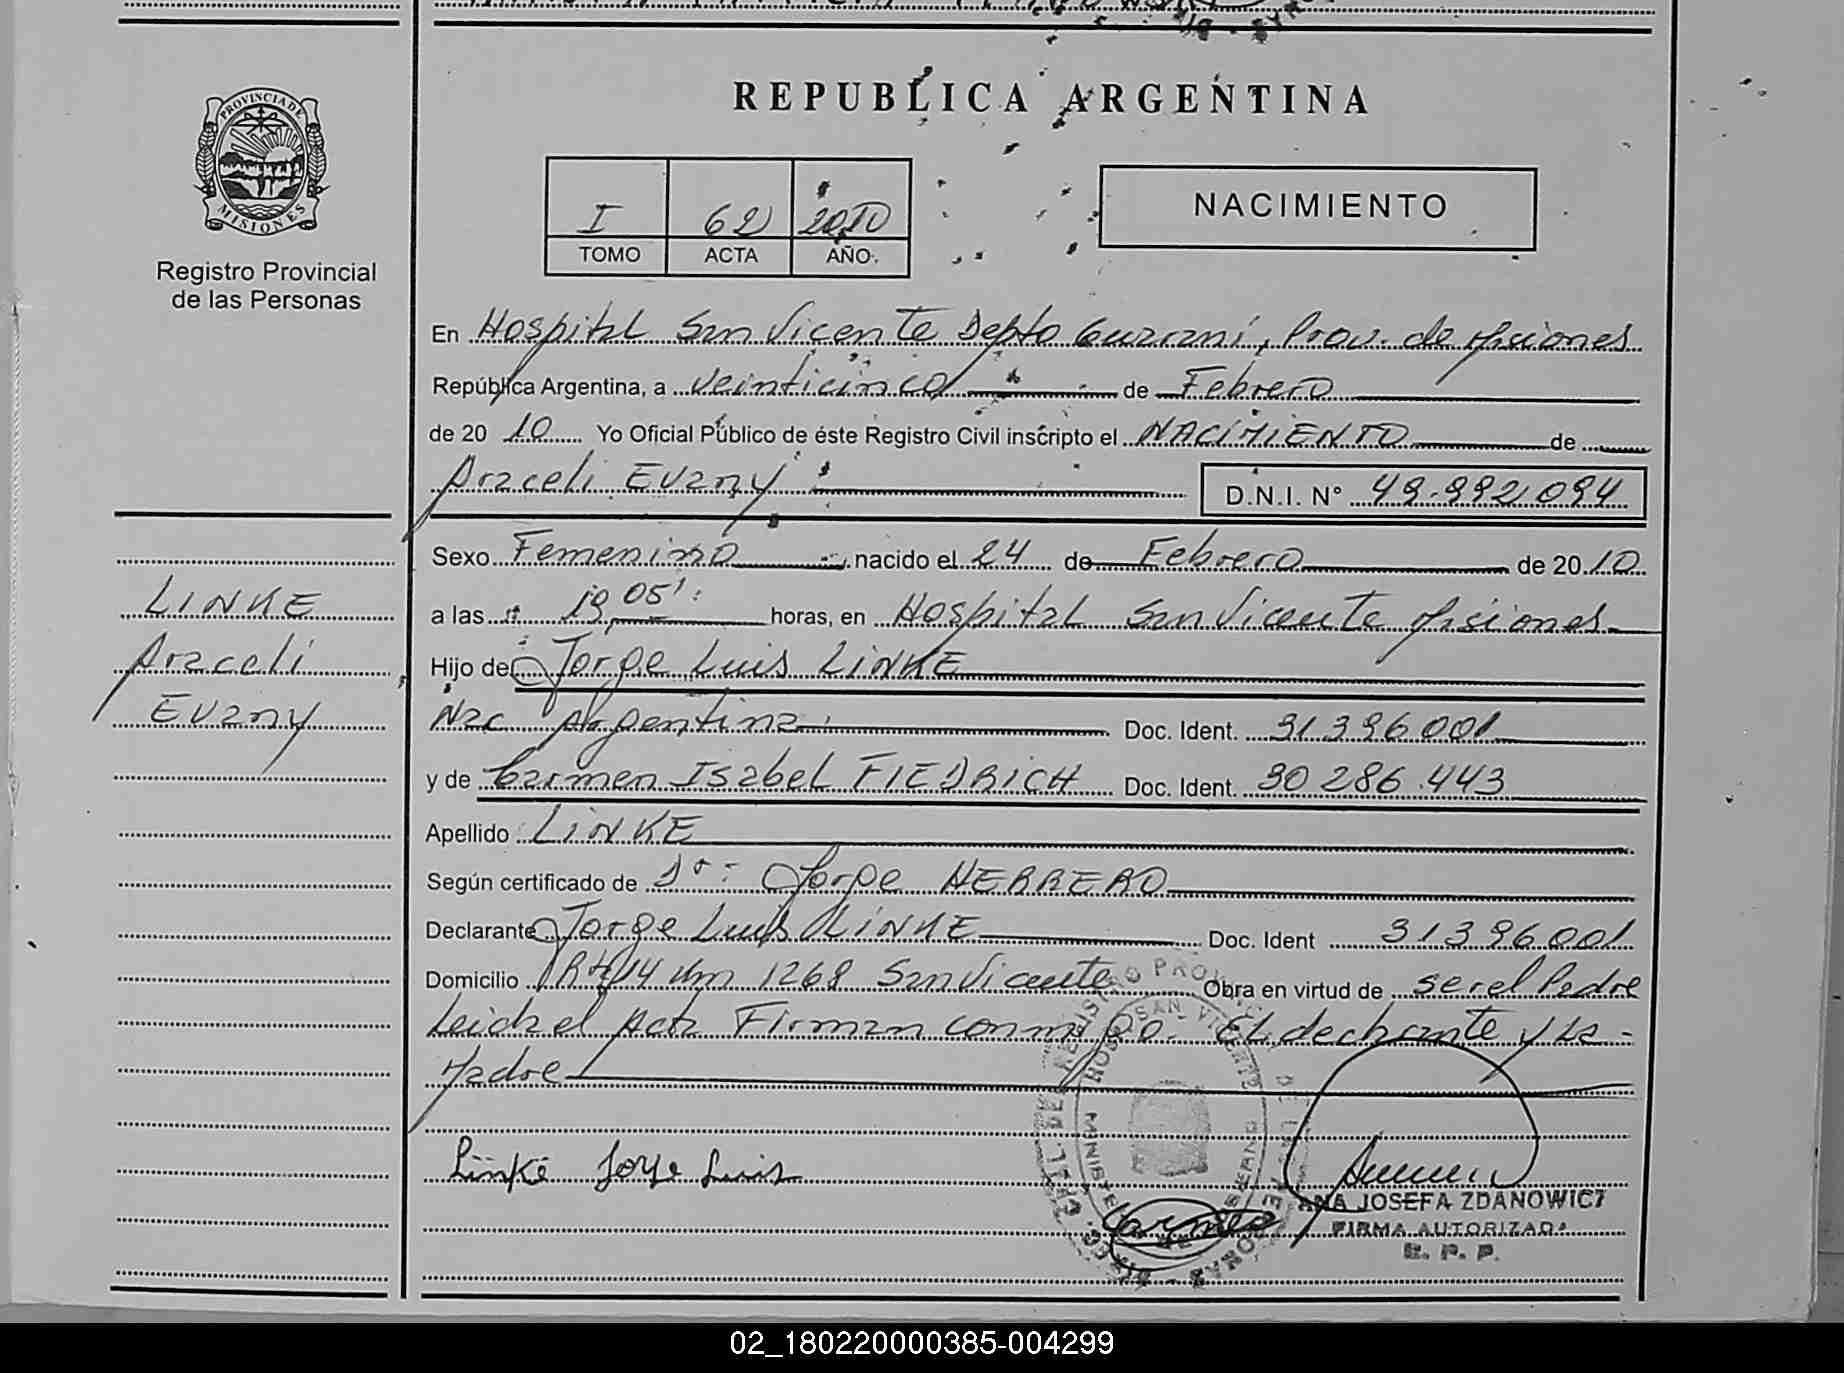 REPUBLICA ARGENTINA
PROVINCIA DE
MISIONES
Registro Provincial
de las Personas
I 62 2010
TOMO ACTA AÑO
NACIMIENTO
En Hospital San Vicente Depto Guaraní, Prov. de Misiones
República Argentina, a veinticinco de Febrero
de 2010 Yo Oficial Público de éste Registro Civil inscripto el NACIMIENTO de
Araceli Evany D.N.I. N° 49.992.094
Sexo Femenino nacido el 24 de Febrero de 2010
a las 19,05' horas, en Hospital San Vicente Misiones
Hijo de Jorge Luis LINKE
Nac Argentina Doc. Ident. 31396001
y de Carmen Isabel FIEDRICH Doc. Ident. 30286.443
Apellido LINKE
Según certificado de Dr: Jorge HERRERO
Declarante Jorge Luis LINKE Doc. Ident 31396001
Domicilio 14 Km 1268 San Vicente Obra en virtud de ser el Padre
Leida el Acta Firman conmigo. El declarante y La
Madre
LINKE
Araceli
Evany
Linke Jorge Luis
HOSP. SAN VICENTE
ANA JOSEFA ZDANOWICZ
FIRMA AUTORIZADA
R. P. P.
02_180220000385-004299